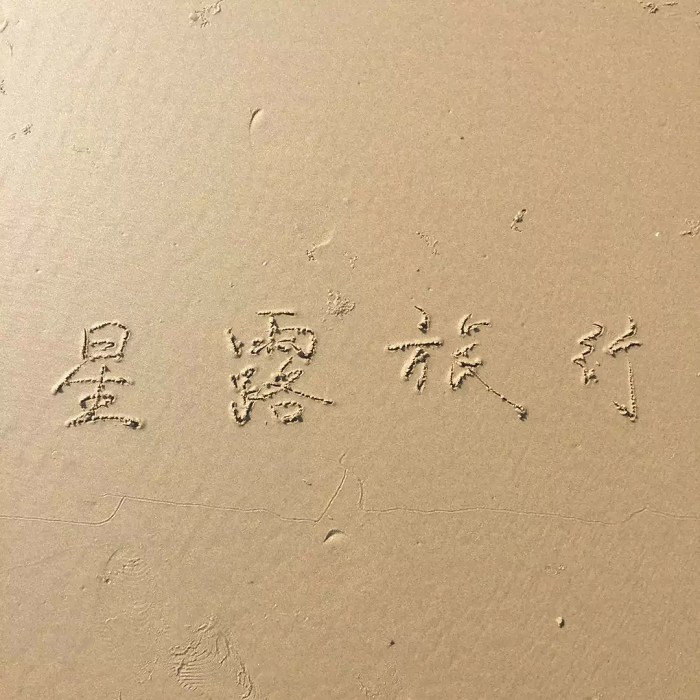 星露旅行